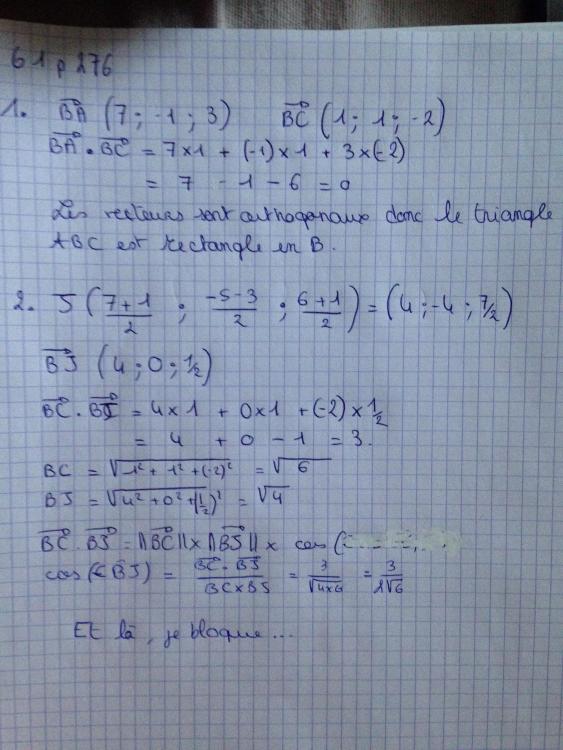 61 p 276
1. BA (7 ; -1 ; 3) BC (1 ; 1 ; -2)
BA . BC = 7×1 + (-1)×1 + 3×(-2)
= 7 - 1 - 6 = 0
Les vecteurs sont orthogonaux donc le triangle
ABC est rectangle en B.
2. J (7+1/2 ; -5-3/2 ; 6+1/2) = (4 ; -4 ; 7/2)
BJ (4 ; 0 ; 1/2)
BC . BJ = 4×1 + 0×1 + (-2)×1/2
= 4 + 0 - 1 = 3.
BC = √1² + 1² + (-2)² = √6
BJ = √4² + 0² + (1/2)² = √4
BC . BJ = ||BC|| × ||BJ|| × cos (
cos (CBJ) = BC . BJ / BC × BJ = 3/√4×6 = 3/2√6
Et là, je bloque ...